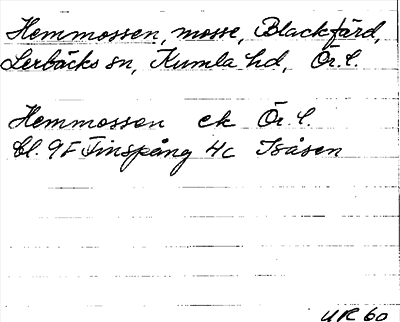 Hemmossen, mosse, Blackfärd,
Lerbäcks sn, Kumla hd, Ör. l.
Hemmossen ek Ör. l.
bl. 9F Finspång 4c Isåsen
UR 60